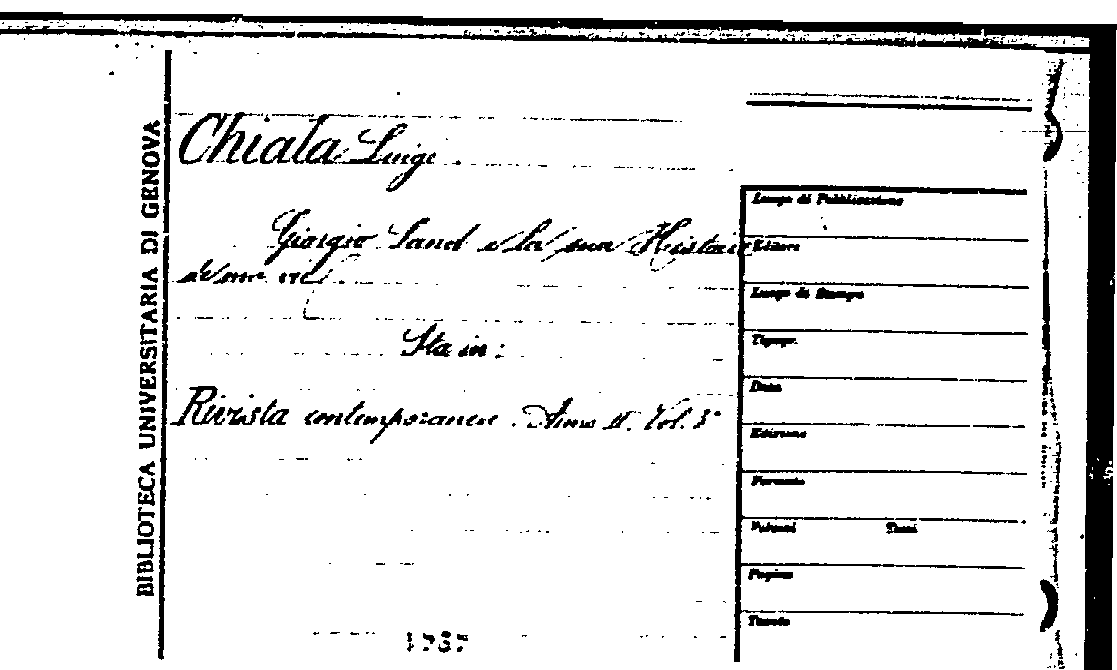 BIBLIOTECA UNIVERSITARIA DI GENOVA
Chiala Luigi.
Giorgio Sand e la sua Histoire
de ma vie.
Sta in:
Rivista contemporanea. Anno II. Vol. 3°
Luogo di Pubblicazione
Editore
Luogo di Stampa
Tipogr.
Data
Edizione
Formato
Volumi Tomi
Pagine
Tavole